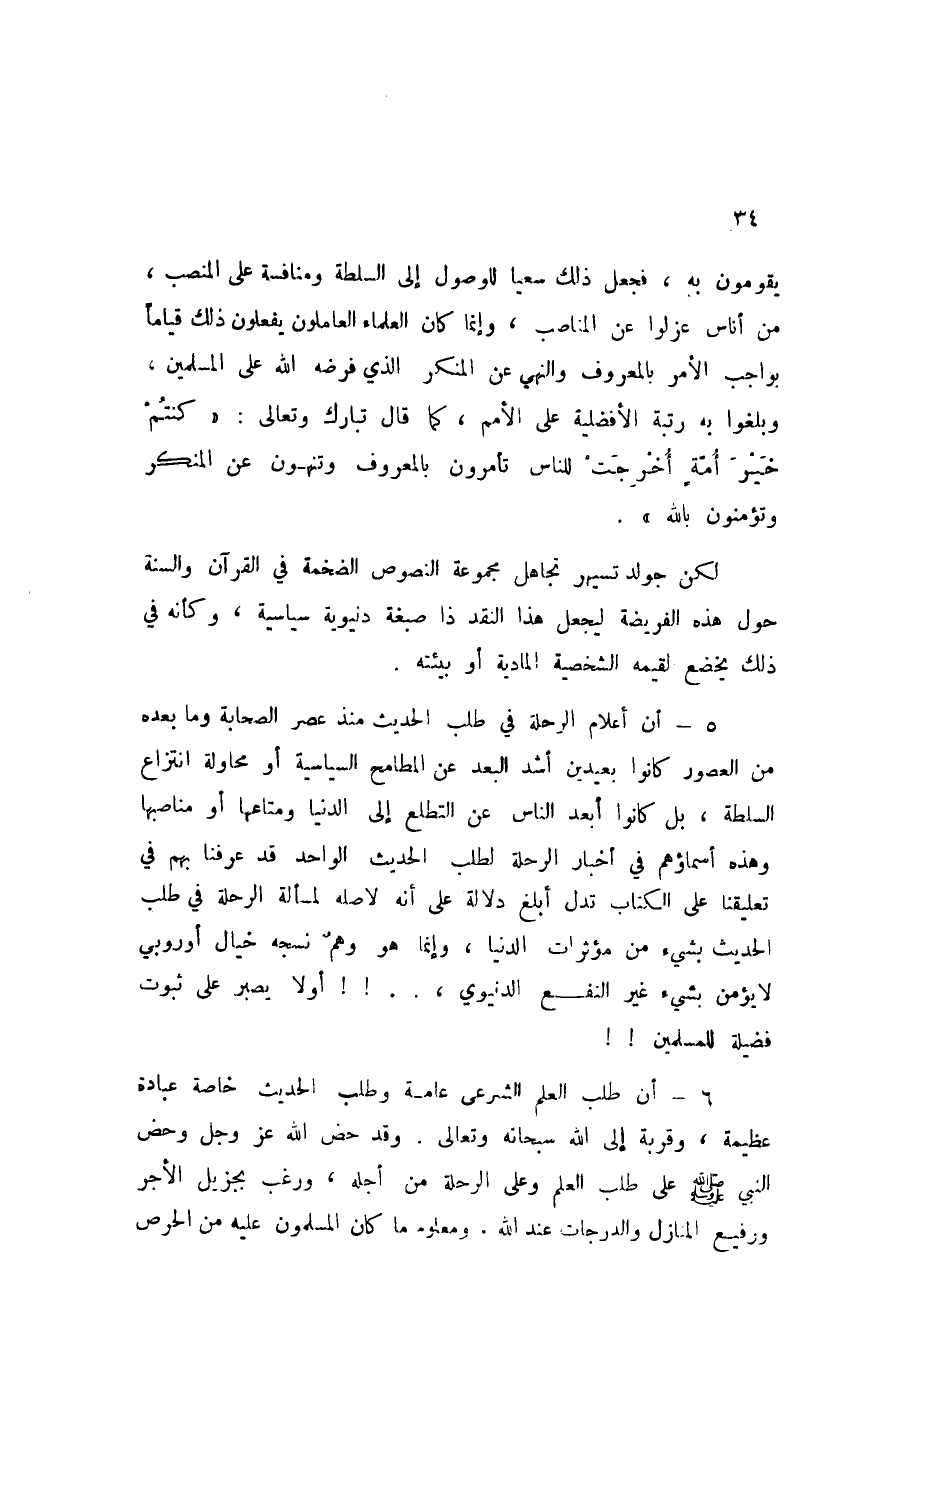 ٣٤
يقومون به ، فجعل ذلك سعيا للوصول إلى السلطة ومنافسة على المنصب ،
من أناس عزلوا عن المناصب ، وإنما كان العلماء العاملون يفعلون ذلك قياماً
بواجب الأمر بالمعروف والنهي عن المنكر الذي فرضه الله على المسلمين ،
وبلغوا به رتبة الأفضلية على الأمم ، كما قال تبارك وتعالى : « كنتُمْ
خَيْرَ أُمّةٍ أُخْرِجَتْ للناس تأمرون بالمعروف وتنهون عن المنكر
وتؤمنون بالله » .
لكن جولد تسيهر تجاهل مجموعة النصوص الضخمة في القرآن والسنة
حول هذه الفريضة ليجعل هذا النقد ذا صبغة دنيوية سياسية ، وكأنه في
ذلك يخضع لقيمه الشخصية المادية أو بيئته .
٥ – أن أعلام الرحلة في طلب الحديث منذ عصر الصحابة وما بعده
من العصور كانوا بعيدين أشد البعد عن المطامح السياسية أو محاولة انتزاع
السلطة ، بل كانوا أبعد الناس عن التطلع إلى الدنيا ومتاعها أو مناصبها
وهذه أسماؤهم في أخبار الرحلة لطلب الحديث الواحد قد عرفنا بهم في
تعليقنا على الكتاب تدل أبلغ دلالة على أنه لاصله لمسألة الرحلة في طلب
الحديث بشيء من مؤثرات الدنيا ، وإنما هو وهمٌ نسجه خيال أوروبي
لايؤمن بشيء غير النفـــع الدنيوي ، . . ! ! أولا يصبر على ثبوت
فضيلة للمسلمين ! !
٦ – أن طلب العلم الشرعي عامة وطلب الحديث خاصة عبادة
عظيمة ، وقربة إلى الله سبحانه وتعالى . وقد حض الله عز وجل وحض
النبي ﷺ على طلب العلم وعلى الرحلة من أجله ، ورغب بجزيل الأجر
ورفيع المنازل والدرجات عند الله . ومعلوم ما كان المسلمون عليه من الحرص